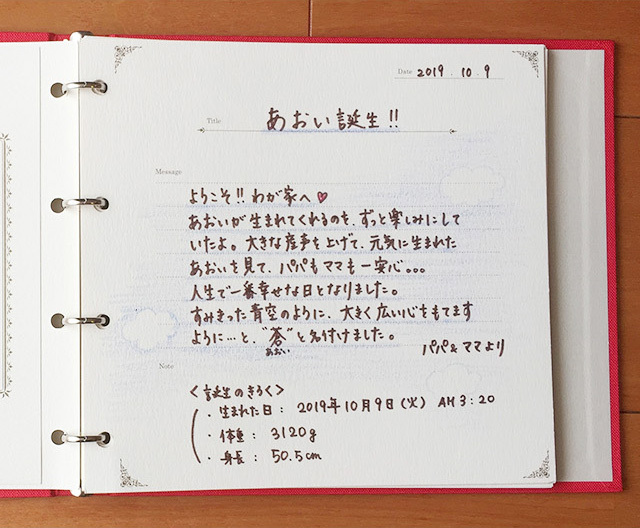 Date 2019.10.9
Title あおい誕生!!
Message
ようこそ!! わが家へ♥
あおいが生まれてくれるのを、ずっと楽しみにして
いたよ。大きな産声を上げて、元気に生まれた
あおいを見て、パパもママも一安心。。。
人生で一番幸せな日となりました。
すみきった青空のように、大きく広い心をもてます
ように…と、"蒼"と名付けました。
あおい
パパ&ママより
Note
<誕生のきろく>
・生まれた日: 2019年10月9日(火) AM 3:20
・体重: 3120g
・身長: 50.5cm